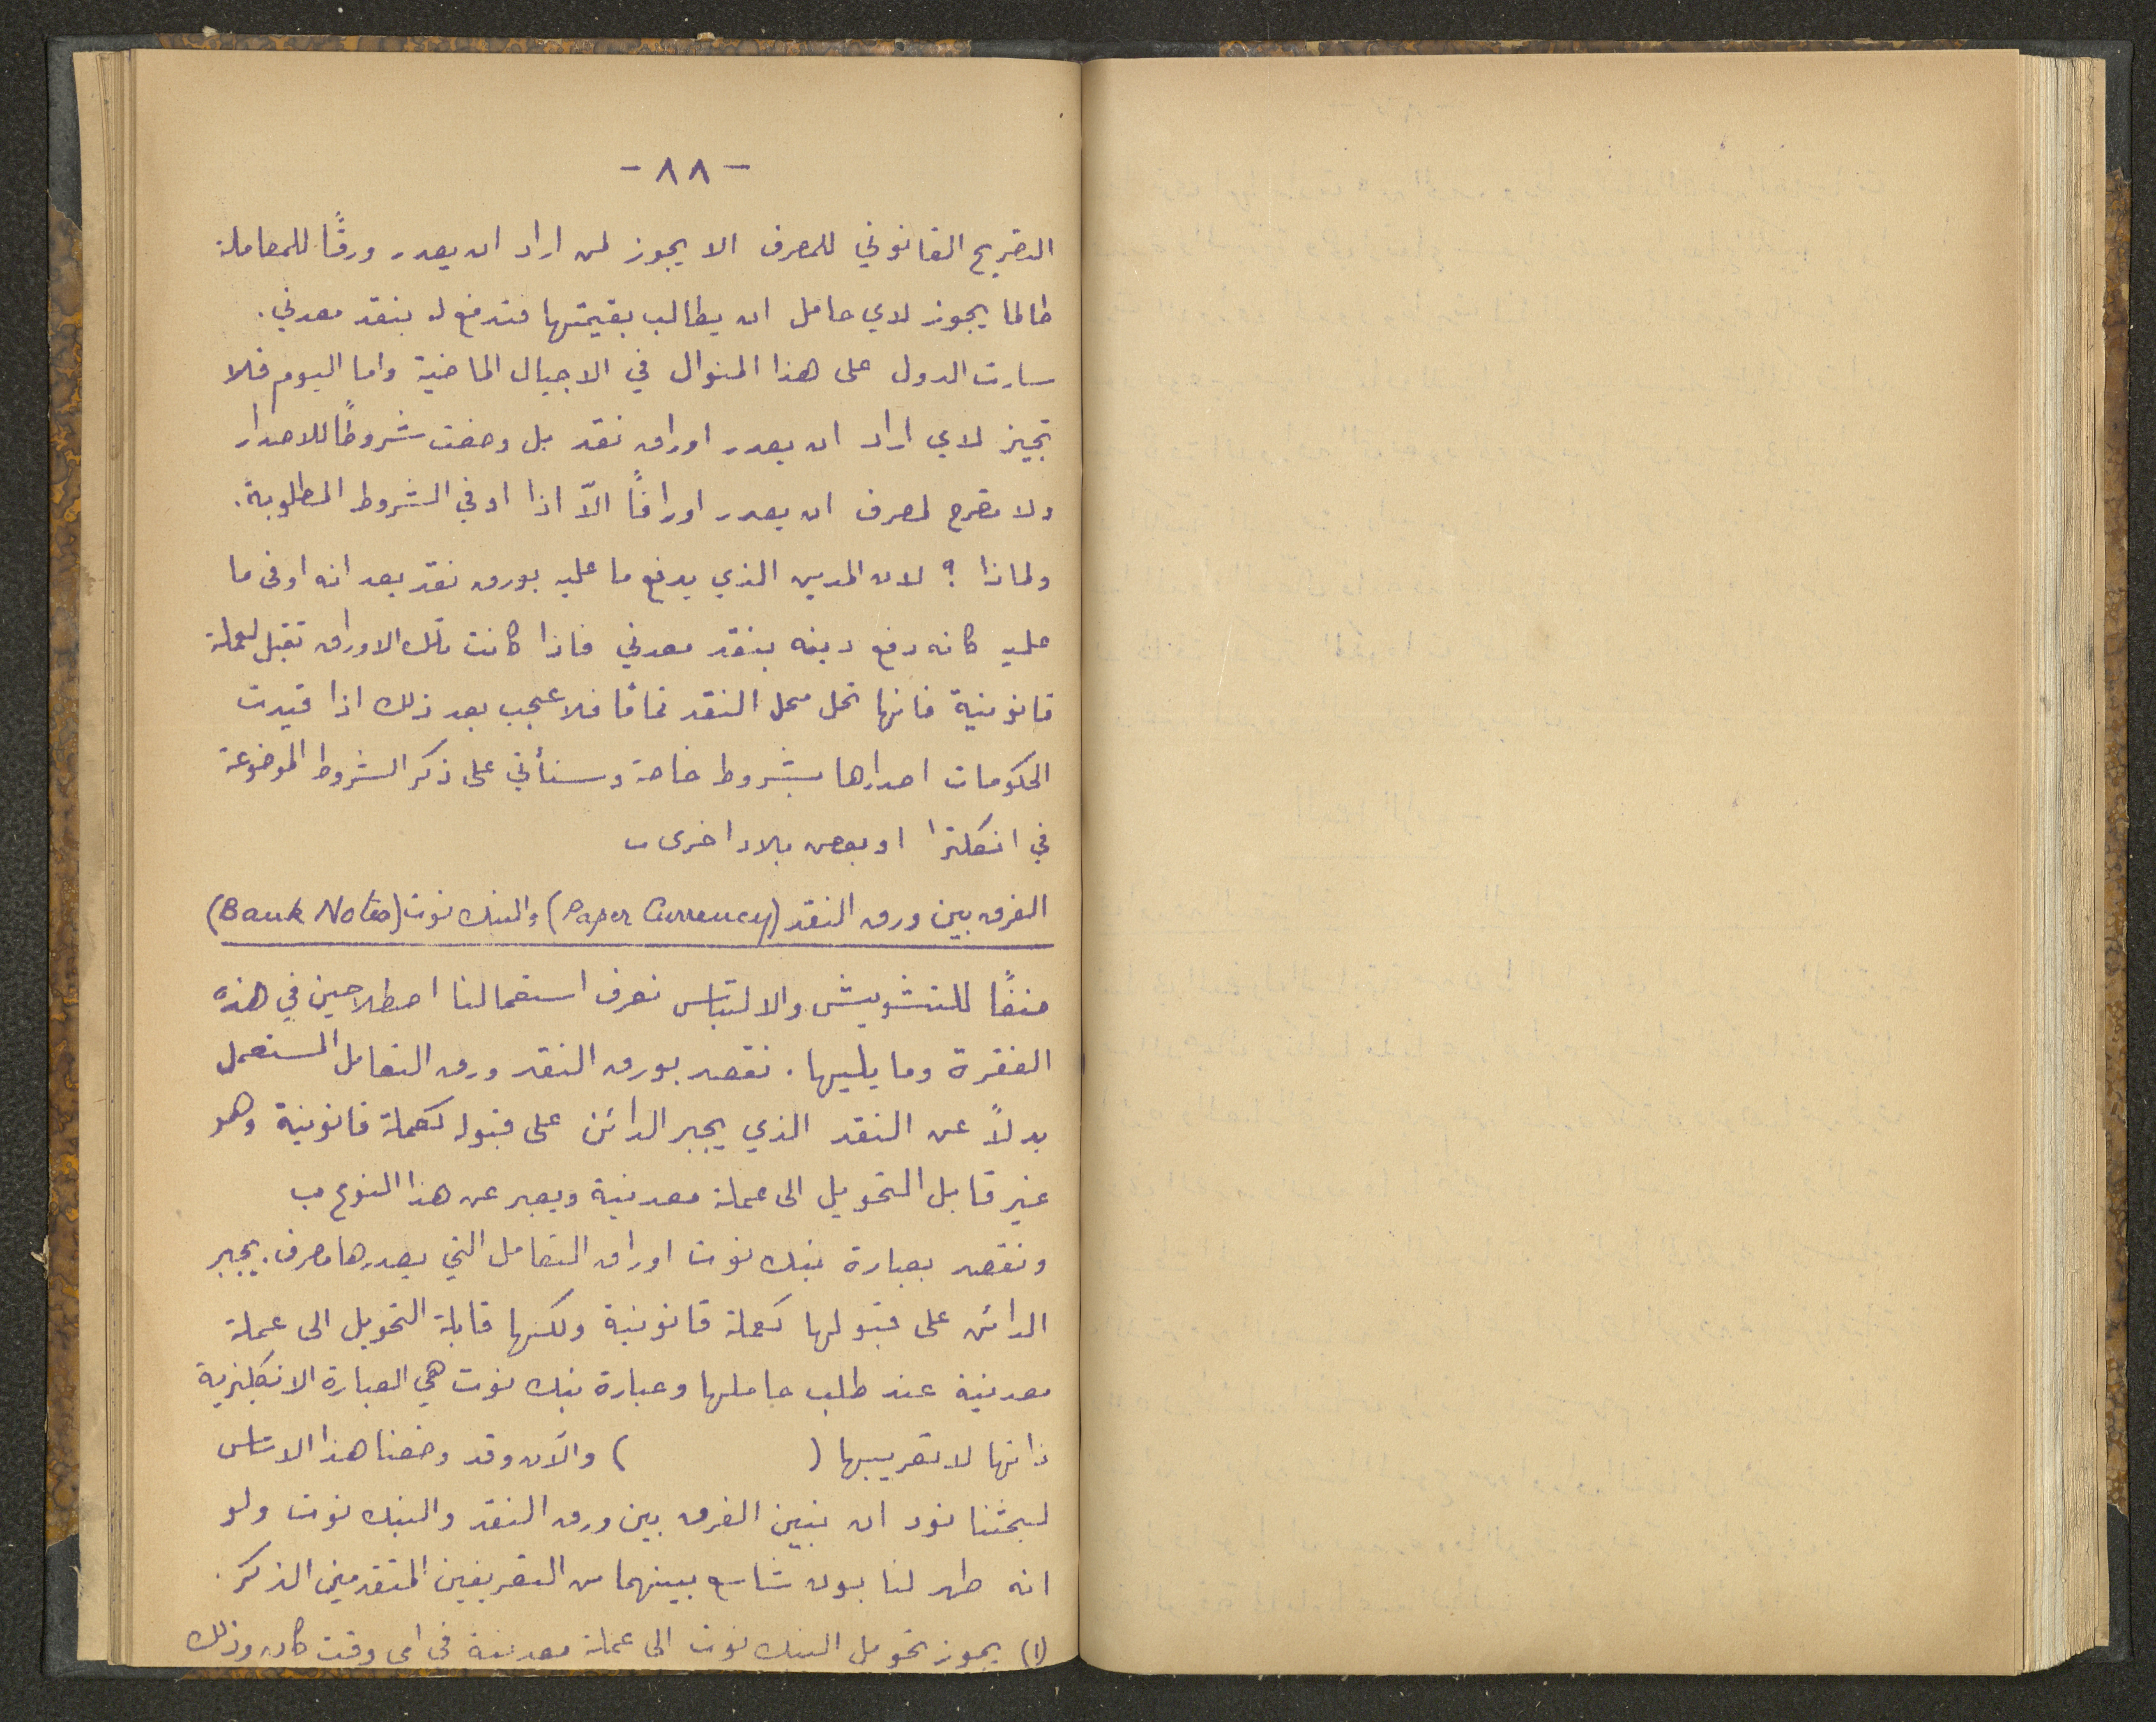 - ٨٨ -
التصريح القانوني للمصرف الا يجوز لمن اراد ان يصدر ورقًا للمعاملة
طالما يجوز لاي حامل ان يطالب بقيمتها فتدفع له بنقد معدني.
سارت الدول على هذا المنوال في الاجيال الماضية واما اليوم فلا
تجيز لاي اراد ان يصدر اوراق نقد بل وضعت شروطًا للاصدار
ولا تصرح لمصرف ان يصدر اوراقًا الّا اذا اوفي الشروط المطلوبة.
ولماذا ؟ لان المدين الذي يدفع ما عليه بورق نقد يعد انه اوفى ما
عليه كانه دفع دينه بنقد معدني فاذا كانت تلك الاوراق تقبل لعملة
قانونية فانها تحل محل النقد تمامًا فلا عجب بعد ذلك اذا قيدت
الحكومات اصدارها بشروط خاصة وسنأتي على ذكر الشروط الموضوعة
في انكلترا او بعض بلاد اخرى
الفرق بين ورق النقد (Paper Currency) والبنك نوت (Bank Notes)
منعًا للتشويش والالتباس نعرف استعمالنا اصطلاحين في هذه
الفقرة وما يليها. نقصد بورق النقد ورق التعامل المستعمل
بدلاً عن النقد الذي يجبر الدائن على قبوله كعملة قانونية وهو
غير قابل التحويل الى عملة معدنية ويعبر عن هذا النوع ب
ونقصد بعبارة بنك نوت اوراق التعامل التي يصدرها مصرف. يجبر
الدائن على قبولها كعملة قانونية ولكنها قابلة التحويل الى عملة
معدنية عند طلب حاملها وعبارة بنك نوت هي العبارة الانكليزية
ذاتها لا تعريبها ( ) والآن وقد وضعنا هذا الاساس
لبحثنا نود ان نبين الفرق بين ورق النقد والبنك نوت ولو
انه ظهر لنا بون شاسع بينهما من التعريفين المتقدمين الذكر.
(١) يجوز تحويل البنك نوت الى عملة معدنية في اى وقت كان وذلك